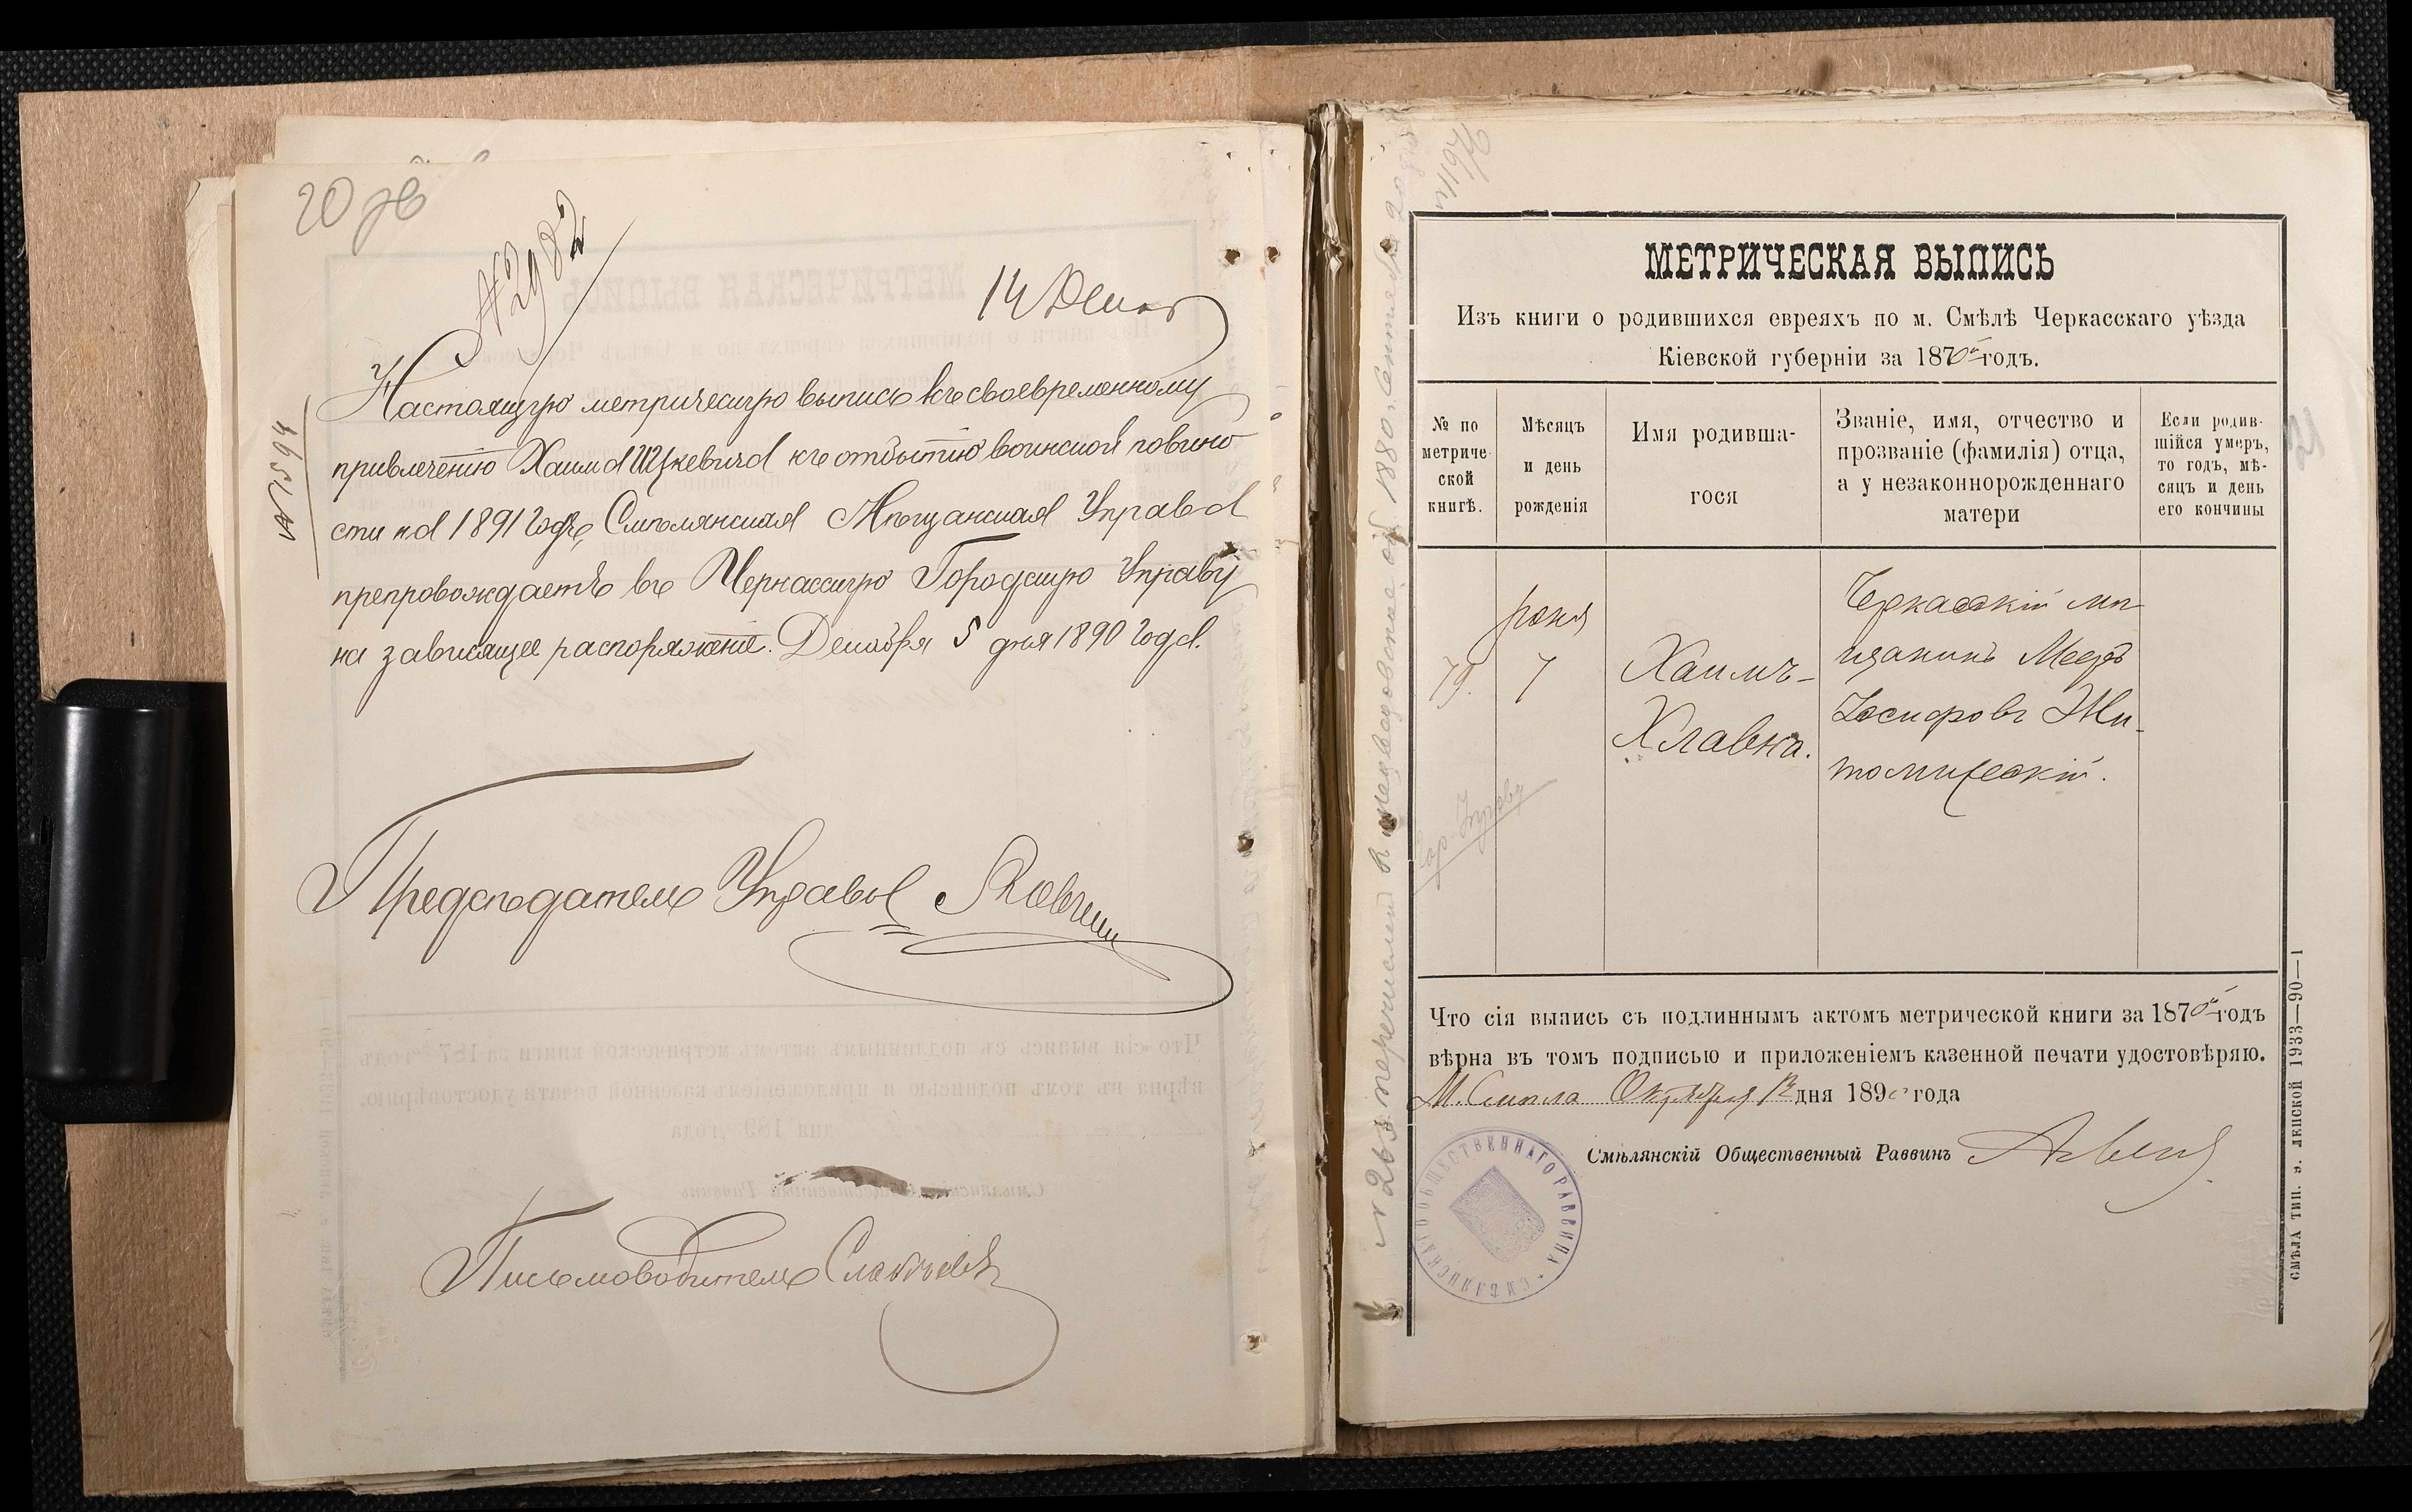 20
№2982
14 Декаб
№ 1594
Настоящую метрическую выпись къ своевременному
привлеченію Хаима Ицкевича къ отбытію воинской повинно
сти на 1891 годъ, Смѣлянская Мѣщанская Управа
препровождаетъ въ Черкасскую Городскую Управу
на зависящее распоряженіе. Декабря 5 дня 1890 года.
Предсѣдатель Управы
Письмоводитель
МЕТРИЧЕСКАЯ ВЫПИСЬ
Изъ книги о родившихся евреяхъ по м. Смѣлѣ Черкасскаго уѣзда
Кіевской губерніи за 1870й годъ.
№ по
метриче
ской
книгѣ.
Мѣсяцъ
и день
рожденія
Имя родивша-
гося
Званіе, имя, отчество и
прозваніе (фамилія) отца,
а у незаконнорожденнаго
матери
Если родив-
шійся умеръ,
то годъ, мѣ-
сяцъ и день
его кончины
79.
7
Хаимъ-
Хлавна.
Черкасскій мѣ
щанинъ Мееръ
Іосифовъ Жи-
томирскій.
Гор. Управу
Что сія выпись съ подлиннымъ актомъ метрической книги за 1870й годъ
вѣрна въ томъ подписью и приложеніемъ казенной печати удостовѣряю.
М. Смѣла Октября 12 дня 1890 года
Смѣлянскій Общественный Раввинъ
СМѢЛЯНСКАГО ОБЩЕСТВЕННАГО РАВВИНА
СМѢЛА ТИП. Э. ЛЕПСКОЙ 1933—90—1